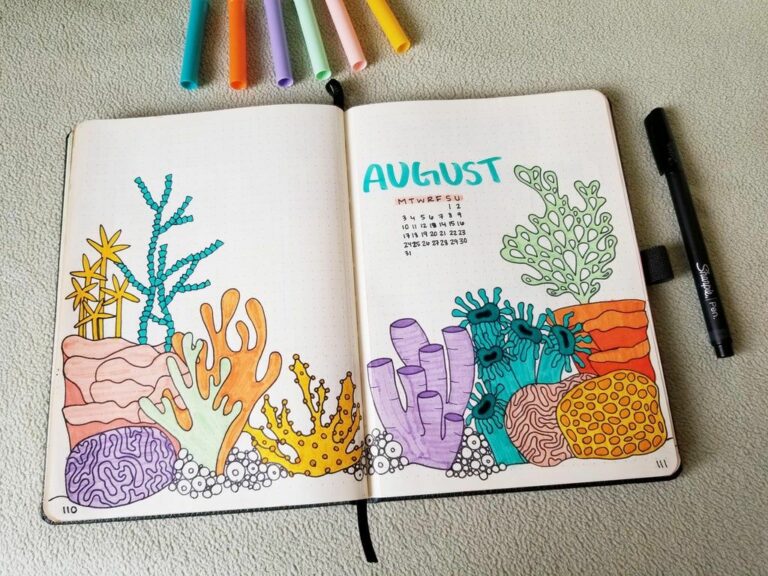 AUGUST
M T W R F S U
1 2
3 4 5 6 7 8 9
10 11 12 13 14 15 16
17 18 19 20 21 22 23
24 25 26 27 28 29 30
31
Sharpie PEN.
110
111